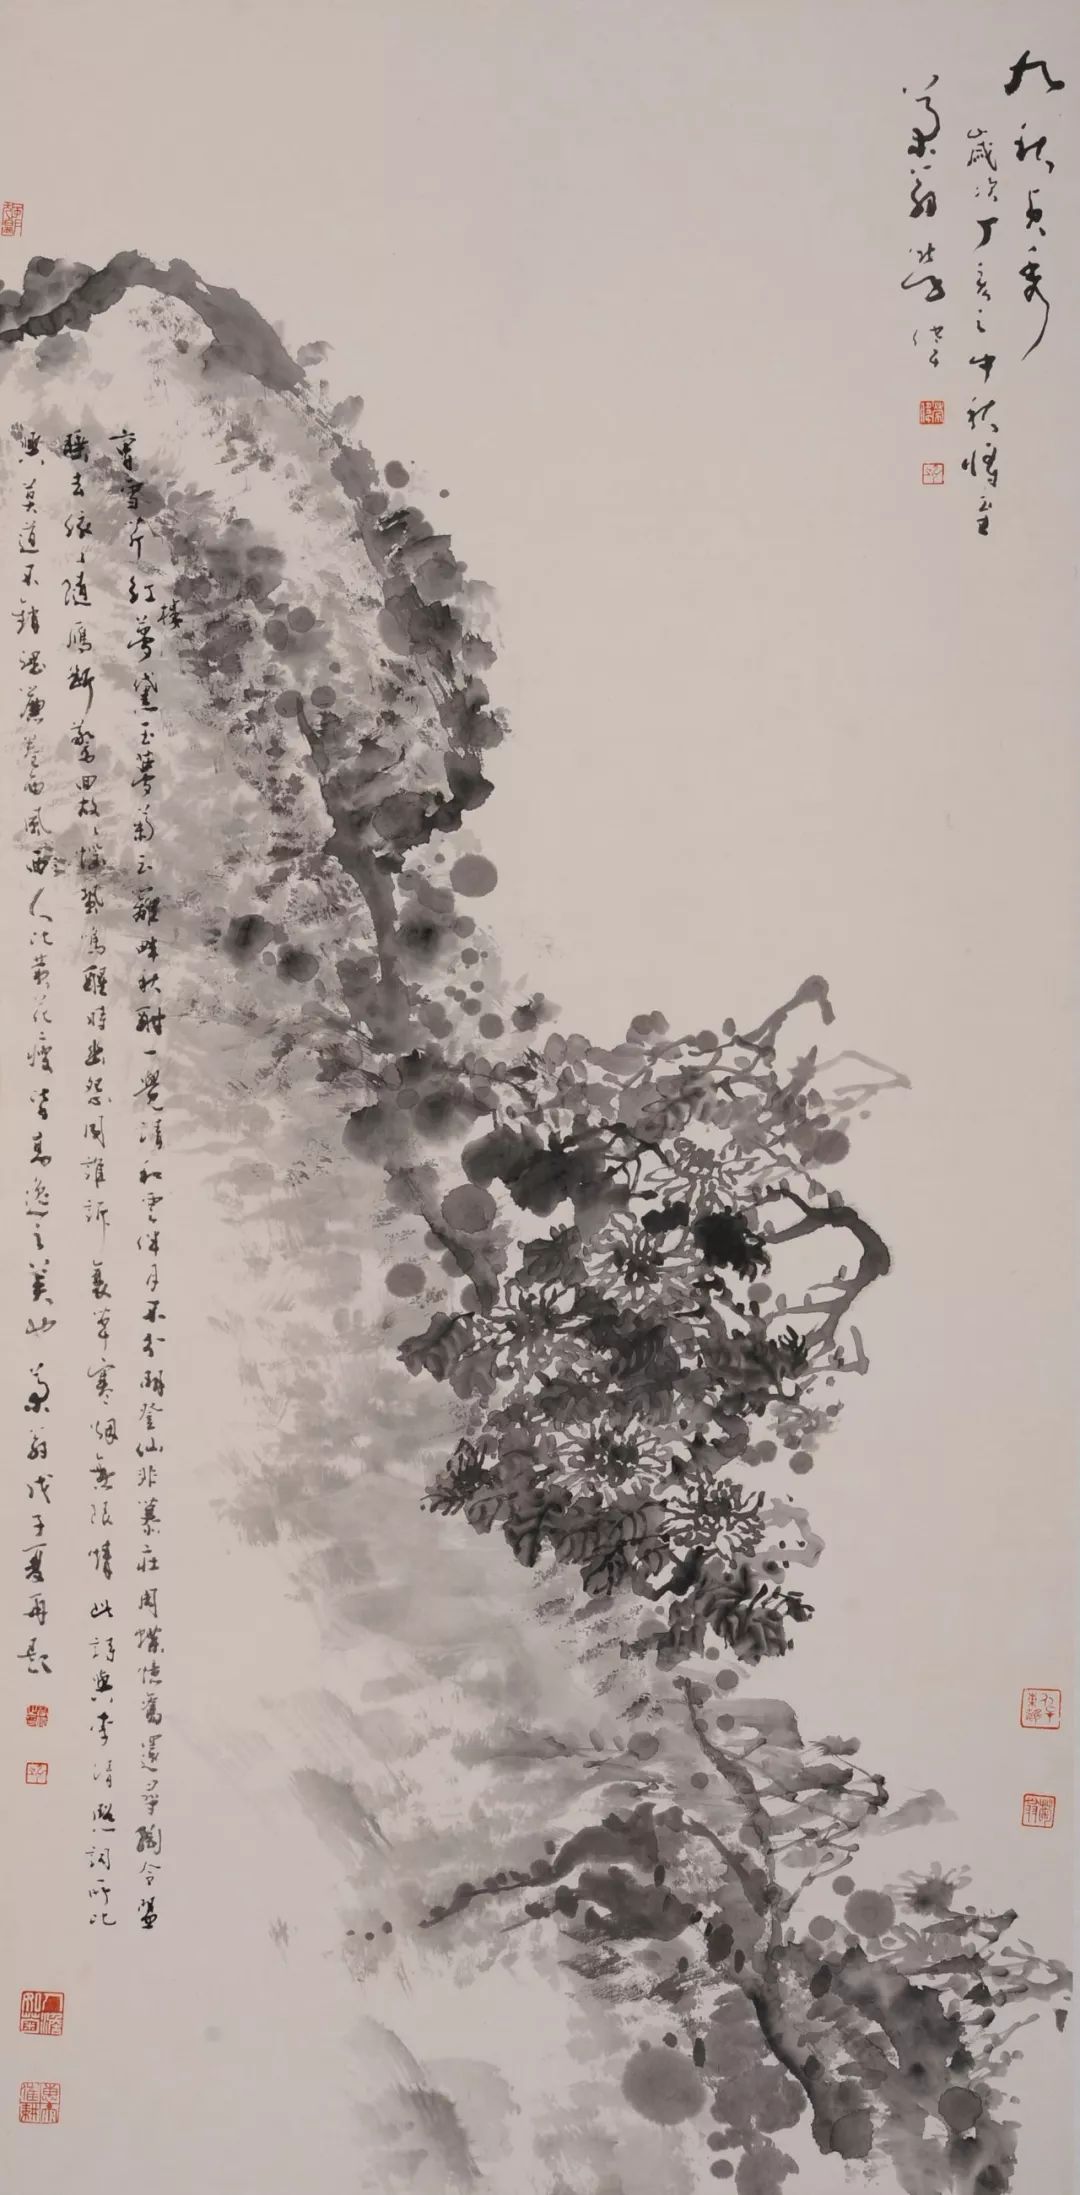 九秋貞秀
歲次丁亥之中秋將至
菊翁
曹雪芹紅樓夢黛玉夢菊云籬畔秋酣一覺清和雲伴月不分明登仙非慕莊周蝶憶舊還尋陶令盟
睡去依依隨雁斷驚回故故惱蛩鳴醒時幽怨同誰訴衰草寒烟無限情此詩與李清照詞所比
興莫道不銷魂簾卷西風人比黃花瘦皆高逸之美也菊翁戊子夏再題